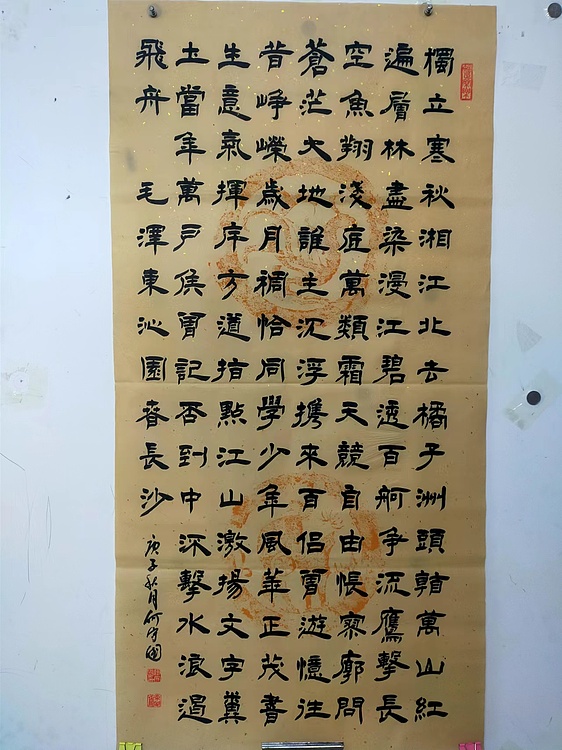 獨立寒秋湘江北去橘子洲頭看萬山紅
遍層林盡染漫江碧透百舸爭流鷹擊長
空魚翔淺底萬類霜天競自由悵寥廓問
蒼茫大地誰主沉浮携來百侶曾遊憶往
昔崢嶸歲月稠恰同學少年風華正茂書
生意氣揮斥方遒指點江山激揚文字糞
土當年萬戶侯曾記否到中流擊水浪遏
飛舟 毛澤東沁園春長沙 庚子秋月何守國